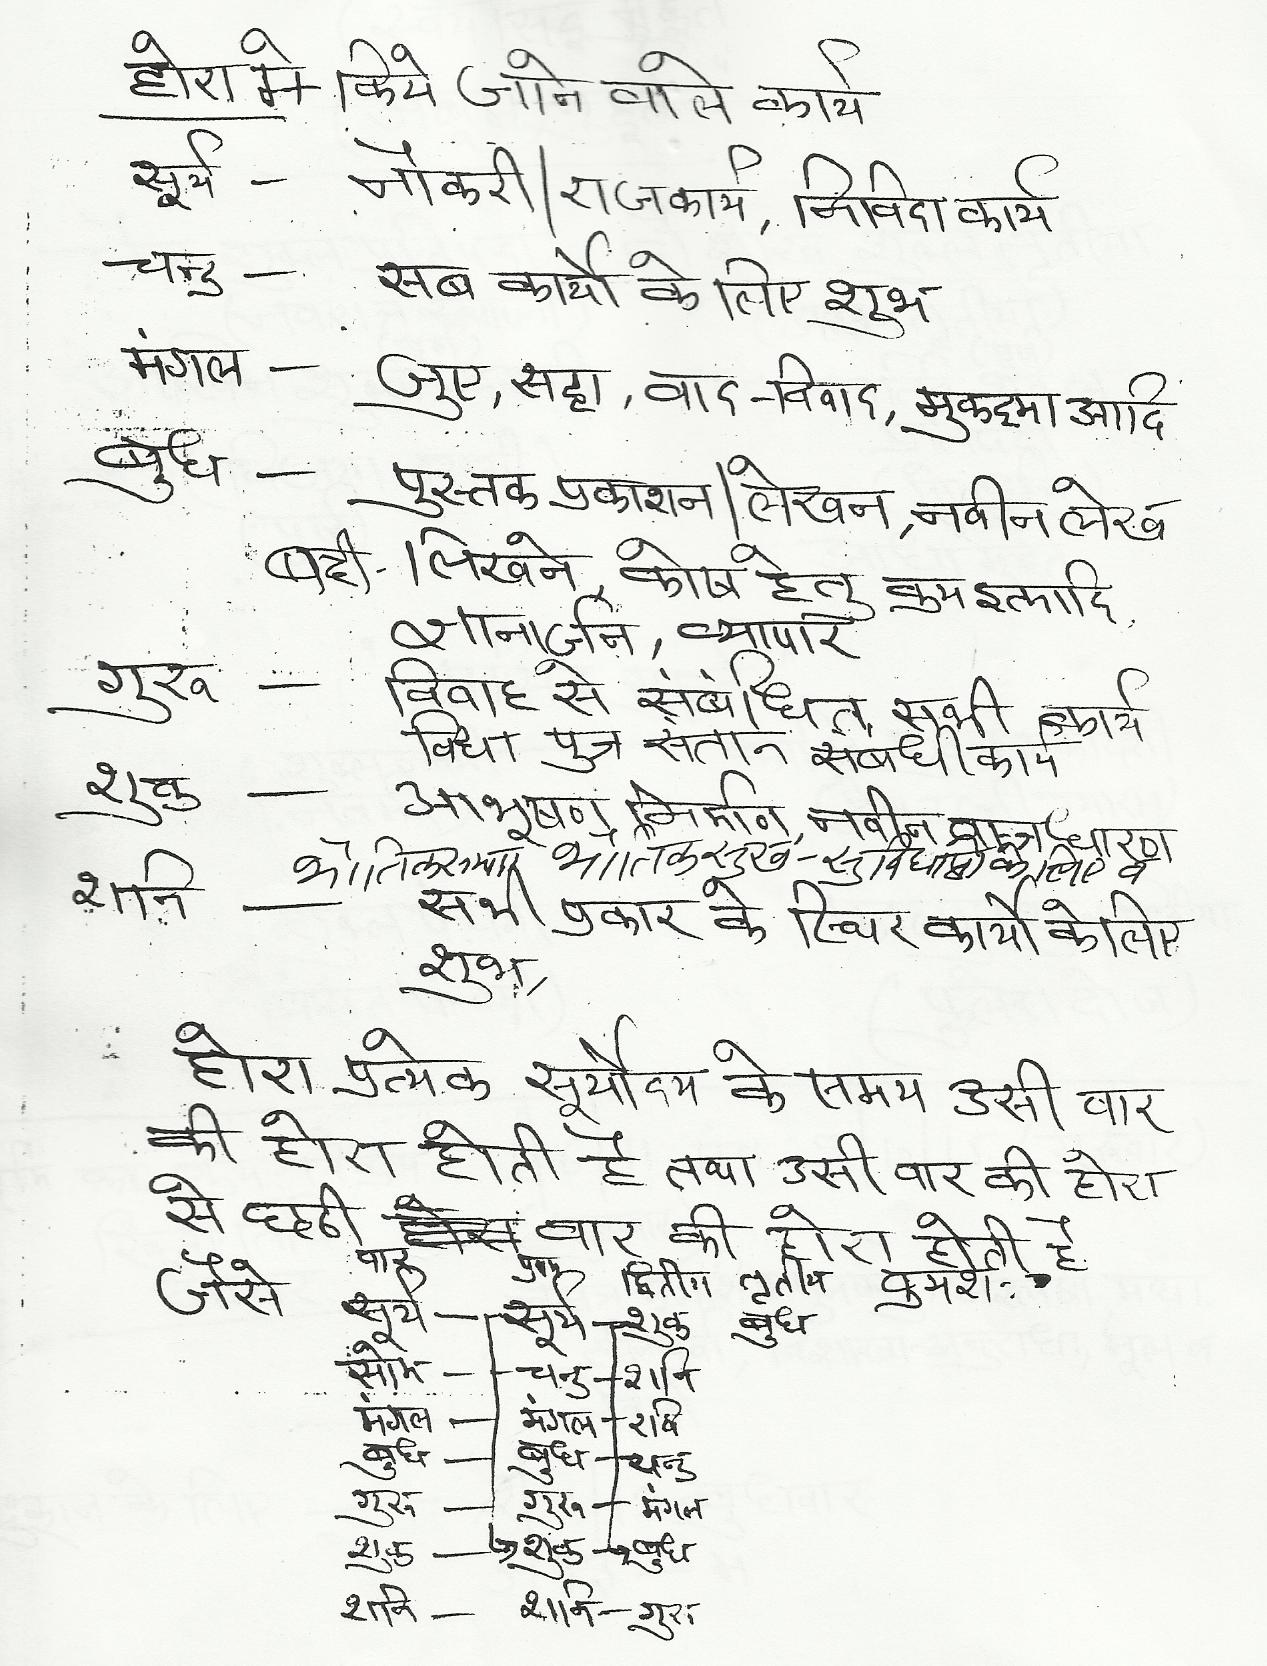 होरा मे किये जाने वाले कार्य
सूर्य – नौकरी/राजकार्य, निविदा कार्य
चन्द्र – सब कार्यो के लिए शुभ
मंगल – जुए, सट्टा, वाद-विवाद, मुकद्दमा आदि
बुध – पुस्तक प्रकाशन/लेखन, नवीन लेख
बही-लिखने, कोष हेतु क्रय इत्यादि,
ज्ञानार्जन, व्यापार
गुरू – विवाह से संबंधित, सभी कार्य
विद्या पुत्र संतान संबंधी कार्य
शुक्र – आभूषण निर्माण, नवीन वस्त्र धारण
भौतिक सुख-सुविधाओ के लिए व
शनि – सभी प्रकार के स्थिर कार्यो के लिए
शुभ,
होरा प्रत्येक सूर्योदय के समय उसी वार
की होरा होती है तथा उसी वार की होरा
से छठी वार की होरा होती है
वार प्रथम द्वितीय तृतीय क्रमश:
जैसे सूर्य – सूर्य – शुक्र बुध
सोम – चन्द्र – शनि
मंगल – मंगल – रवि
बुध – बुध – चन्द्र
गुरू – गुरू – मंगल
शुक्र – शुक्र – बुध
शनि – शनि – गुरू